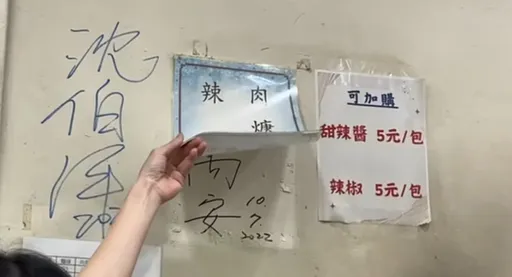 沈
伯
洋
辣 肉
丙
安
10.
7.
2022
可加購
甜辣醬 5元/包
辣椒 5元/包